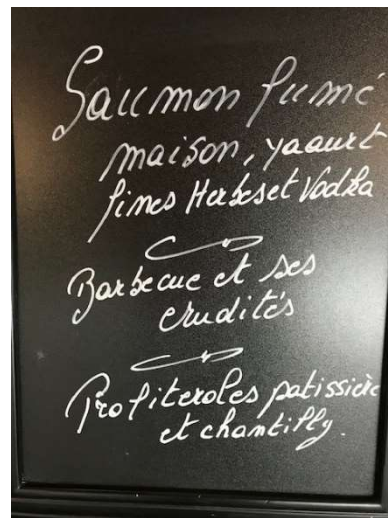 Saumon fumé
maison, yaourt
fines Herbes et Vodka
Barbecue et ses
crudités
Profiteroles patissière
et chantilly.